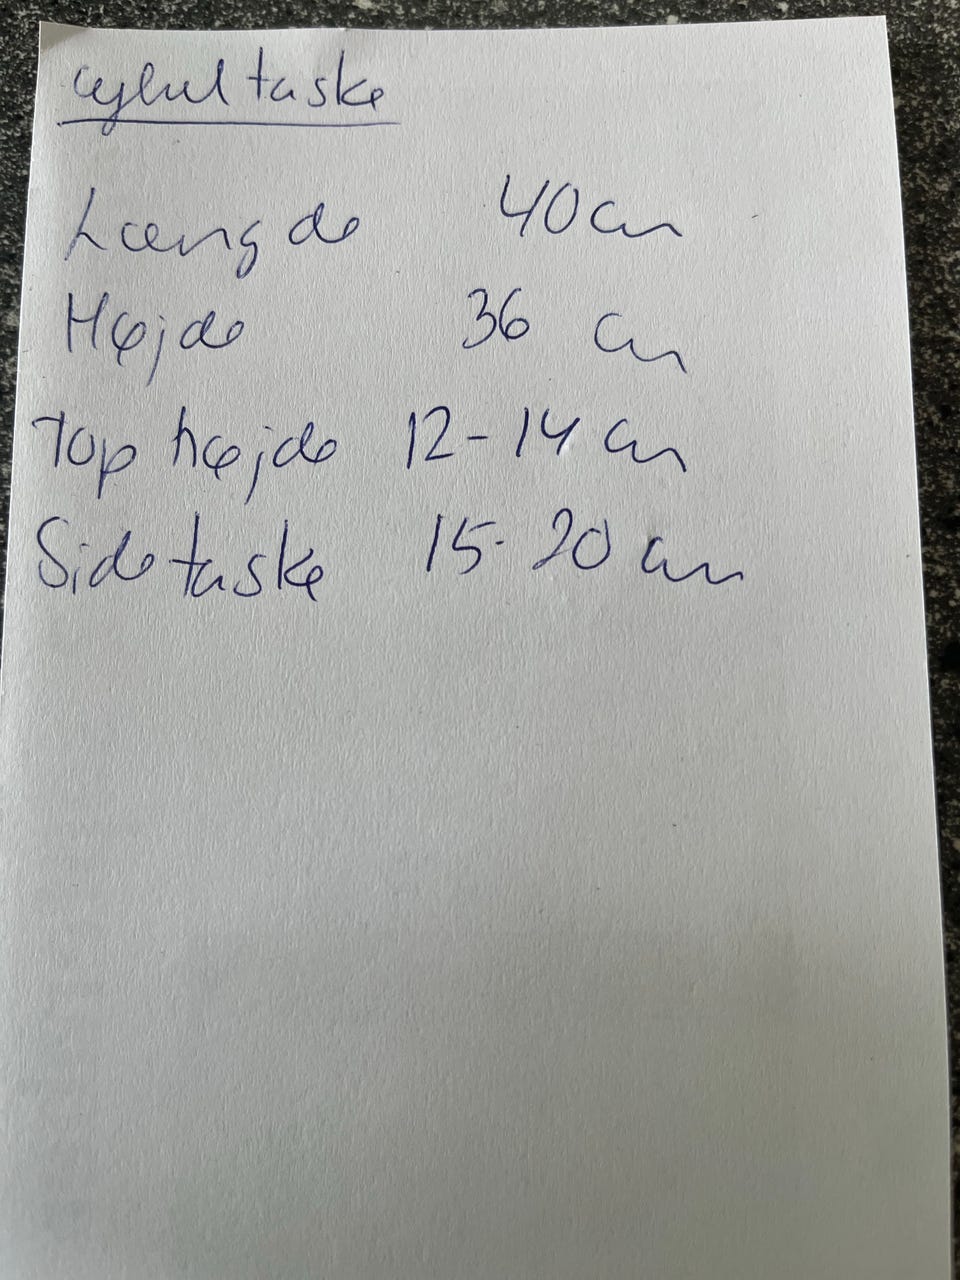 cykel taske
Længde 40 cm
Højde 36 cm
Top højde 12-14 cm
Side taske 15-20 cm